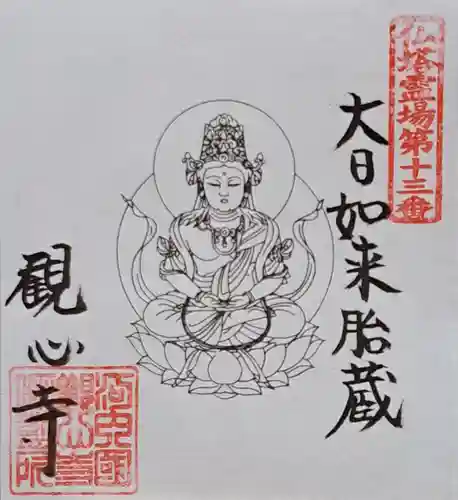 仏塔霊場第十三番
大日如来胎蔵
観心寺